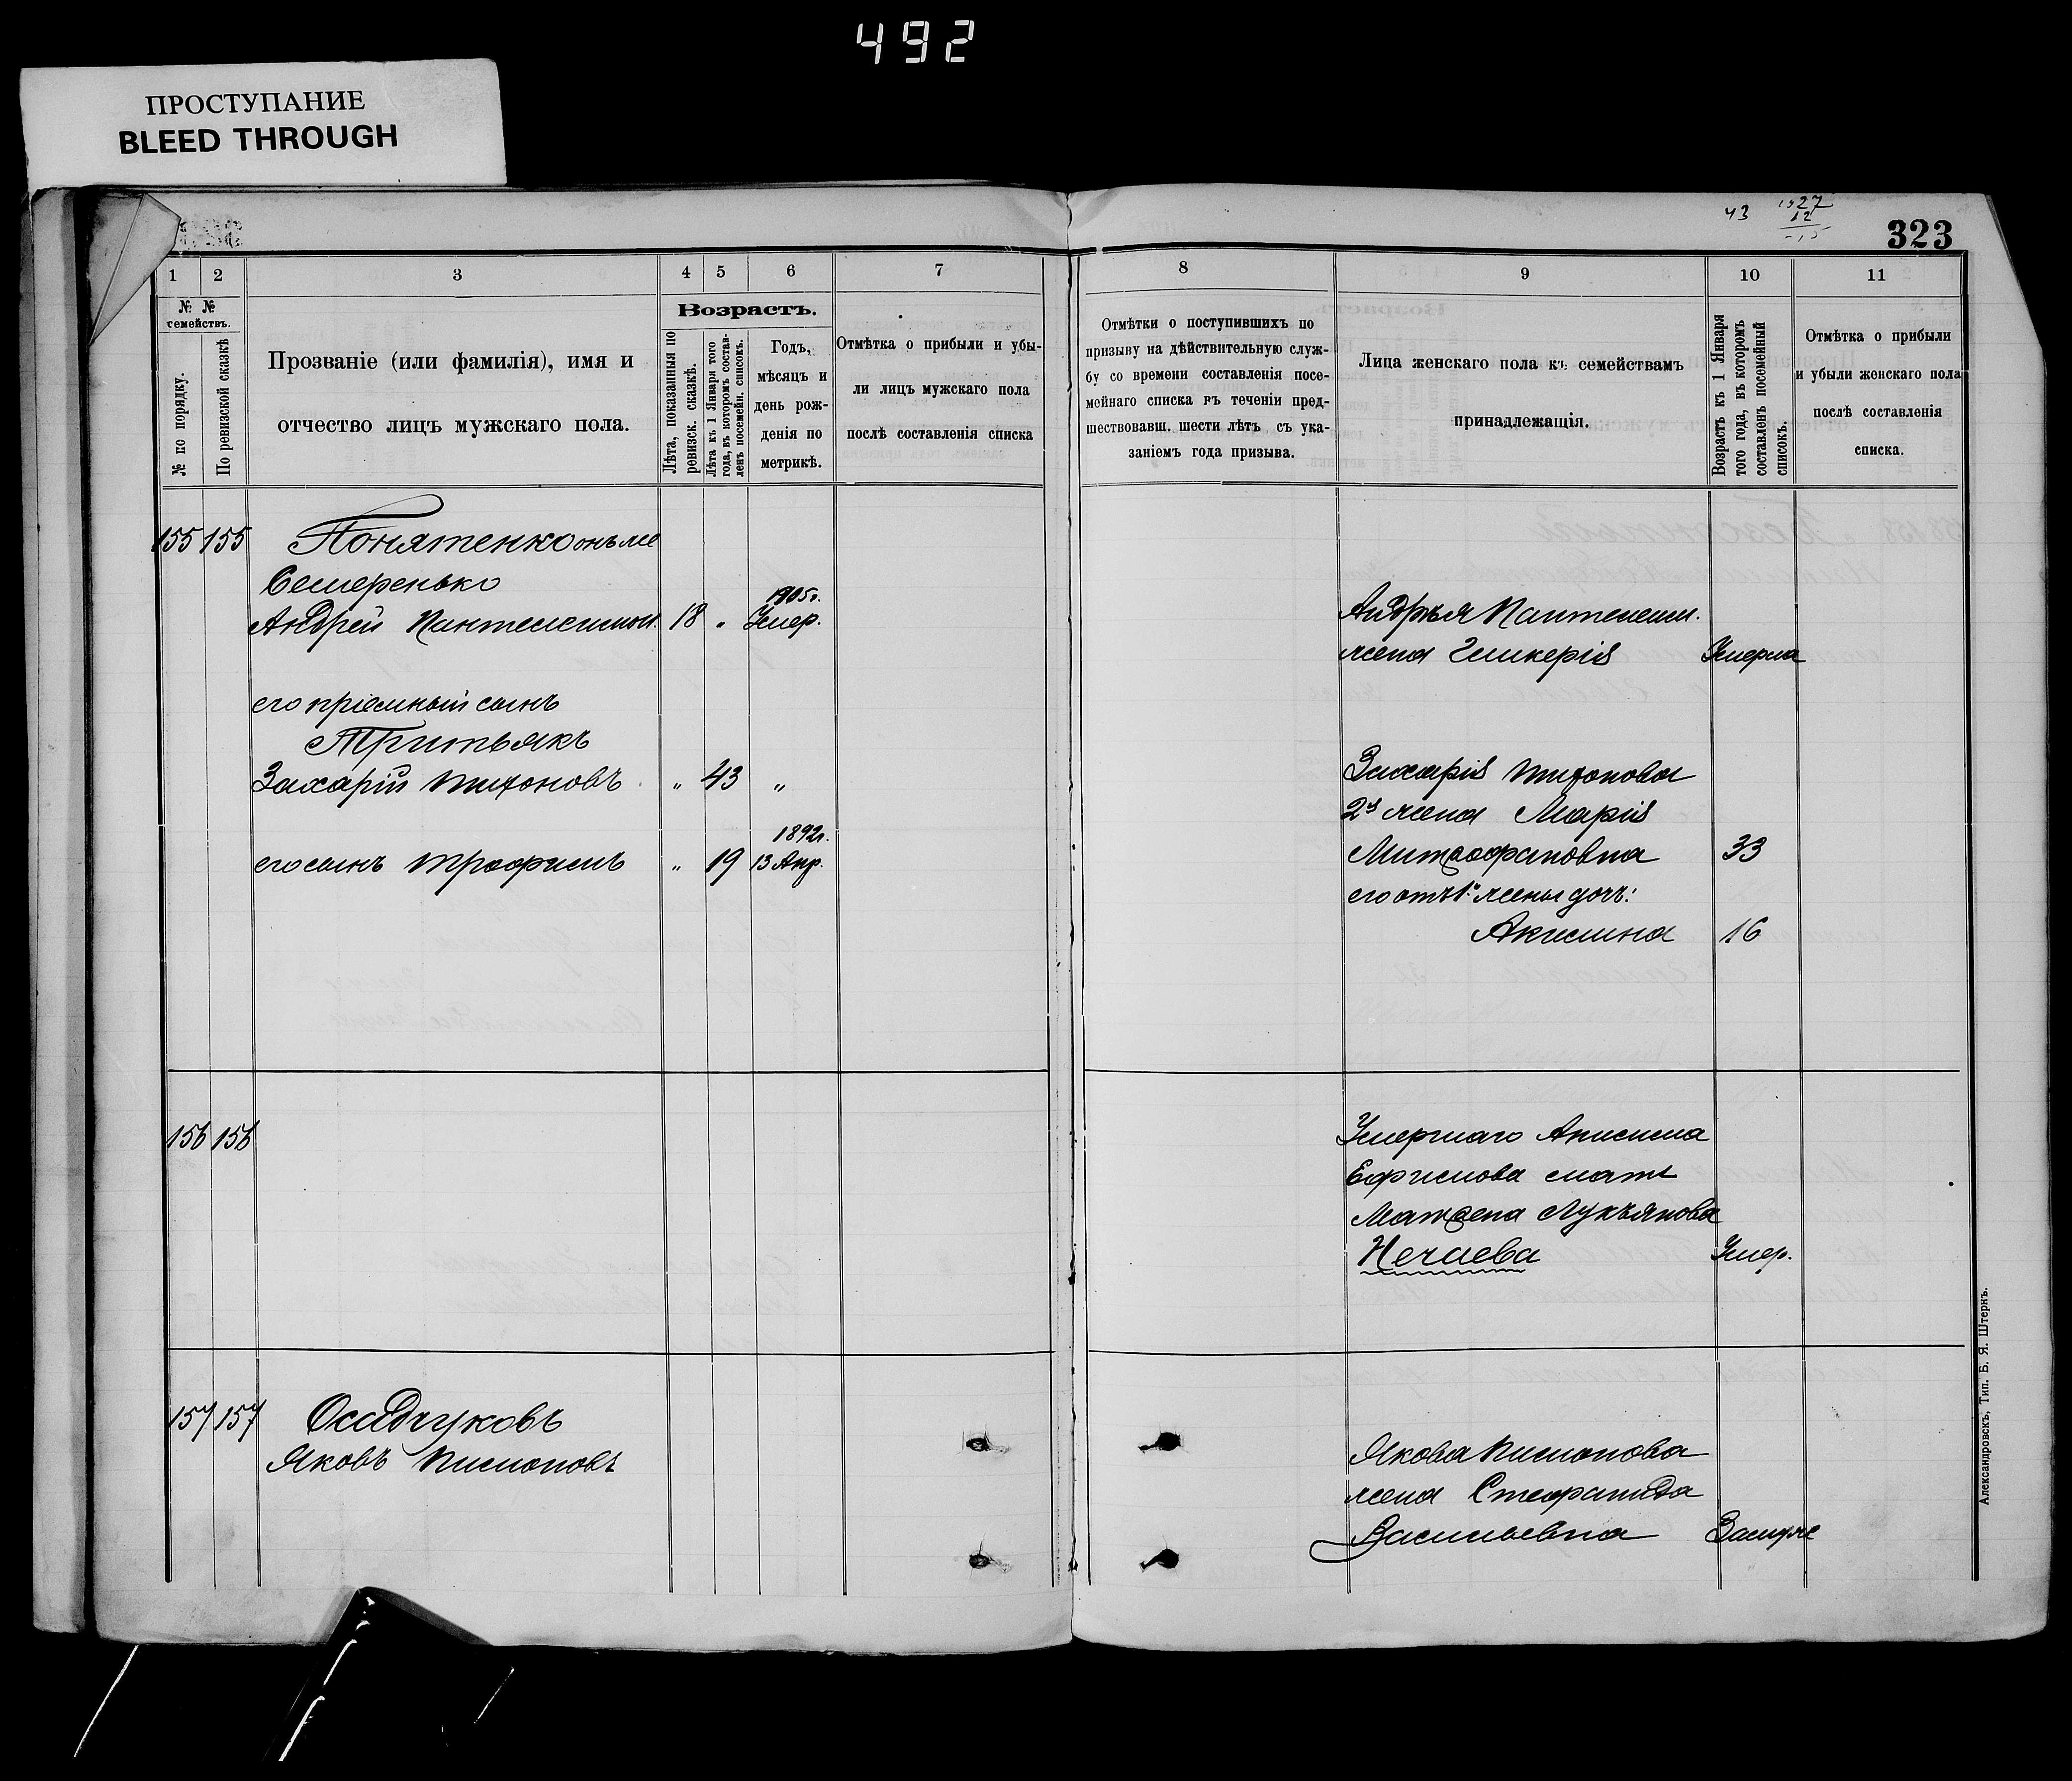 492
ПРОСТУПАНИЕ
BLEED THROUGH
43
1927
12
323
1 2 3 4 5 6 7
№ № семействъ.
№ по порядку.
По ревизской сказкѣ
Прозваніе (или фамилія), имя и
отчество лицъ мужскаго пола.
Возрастъ.
Лѣта, показанныя по
ревизск. сказкѣ.
Лѣта къ 1 Января того
года, въ которомъ состав-
ленъ посемейн. списокъ.
Годъ,
мѣсяцъ и
день рож-
денія по
метрикѣ.
Отмѣтка о прибыли и убы-
ли лицъ мужскаго пола
послѣ составленія списка
155 155 Понятенко онъ же
Семеренько
1905г.
Андрей Пантелеимон. 18 „ Умер.
его пріемный сынъ
Тритьякъ
Захарій Тихоновъ „ 43 „
1892г.
его сынъ Трофимъ „ 19 13 Апр.
156 156
157 157 Осадчуковъ
Яковъ Пимоновъ
8 9 10 11
Отмѣтки о поступившихъ по
призыву на дѣйствительную служ-
бу со времени составленія посе-
мейнаго списка въ теченіи пред-
шествовавш. шести лѣтъ съ ука-
заніемъ года призыва.
Лица женскаго пола къ семействамъ
принадлежащія.
Возрастъ къ 1 Января
того года, въ которомъ
составленъ посемейный
списокъ.
Отмѣтка о прибыли
и убыли женскаго пола
послѣ составленія
списка.
Андрѣя Пантелеим.
жена Гликерія Умерла
Захарія Тихонова
2я жена Марія
Митрофановна 33
его отъ 1й жены доч:
Акилина 16
Умершаго Анисима
Ефимова мать
Матрена Лукъянова
Нечаева Умер.
Якова Пимонова
жена Стефанида
Васильевна Замуже
Александровскъ, Тип. Б. Я. Штернъ.